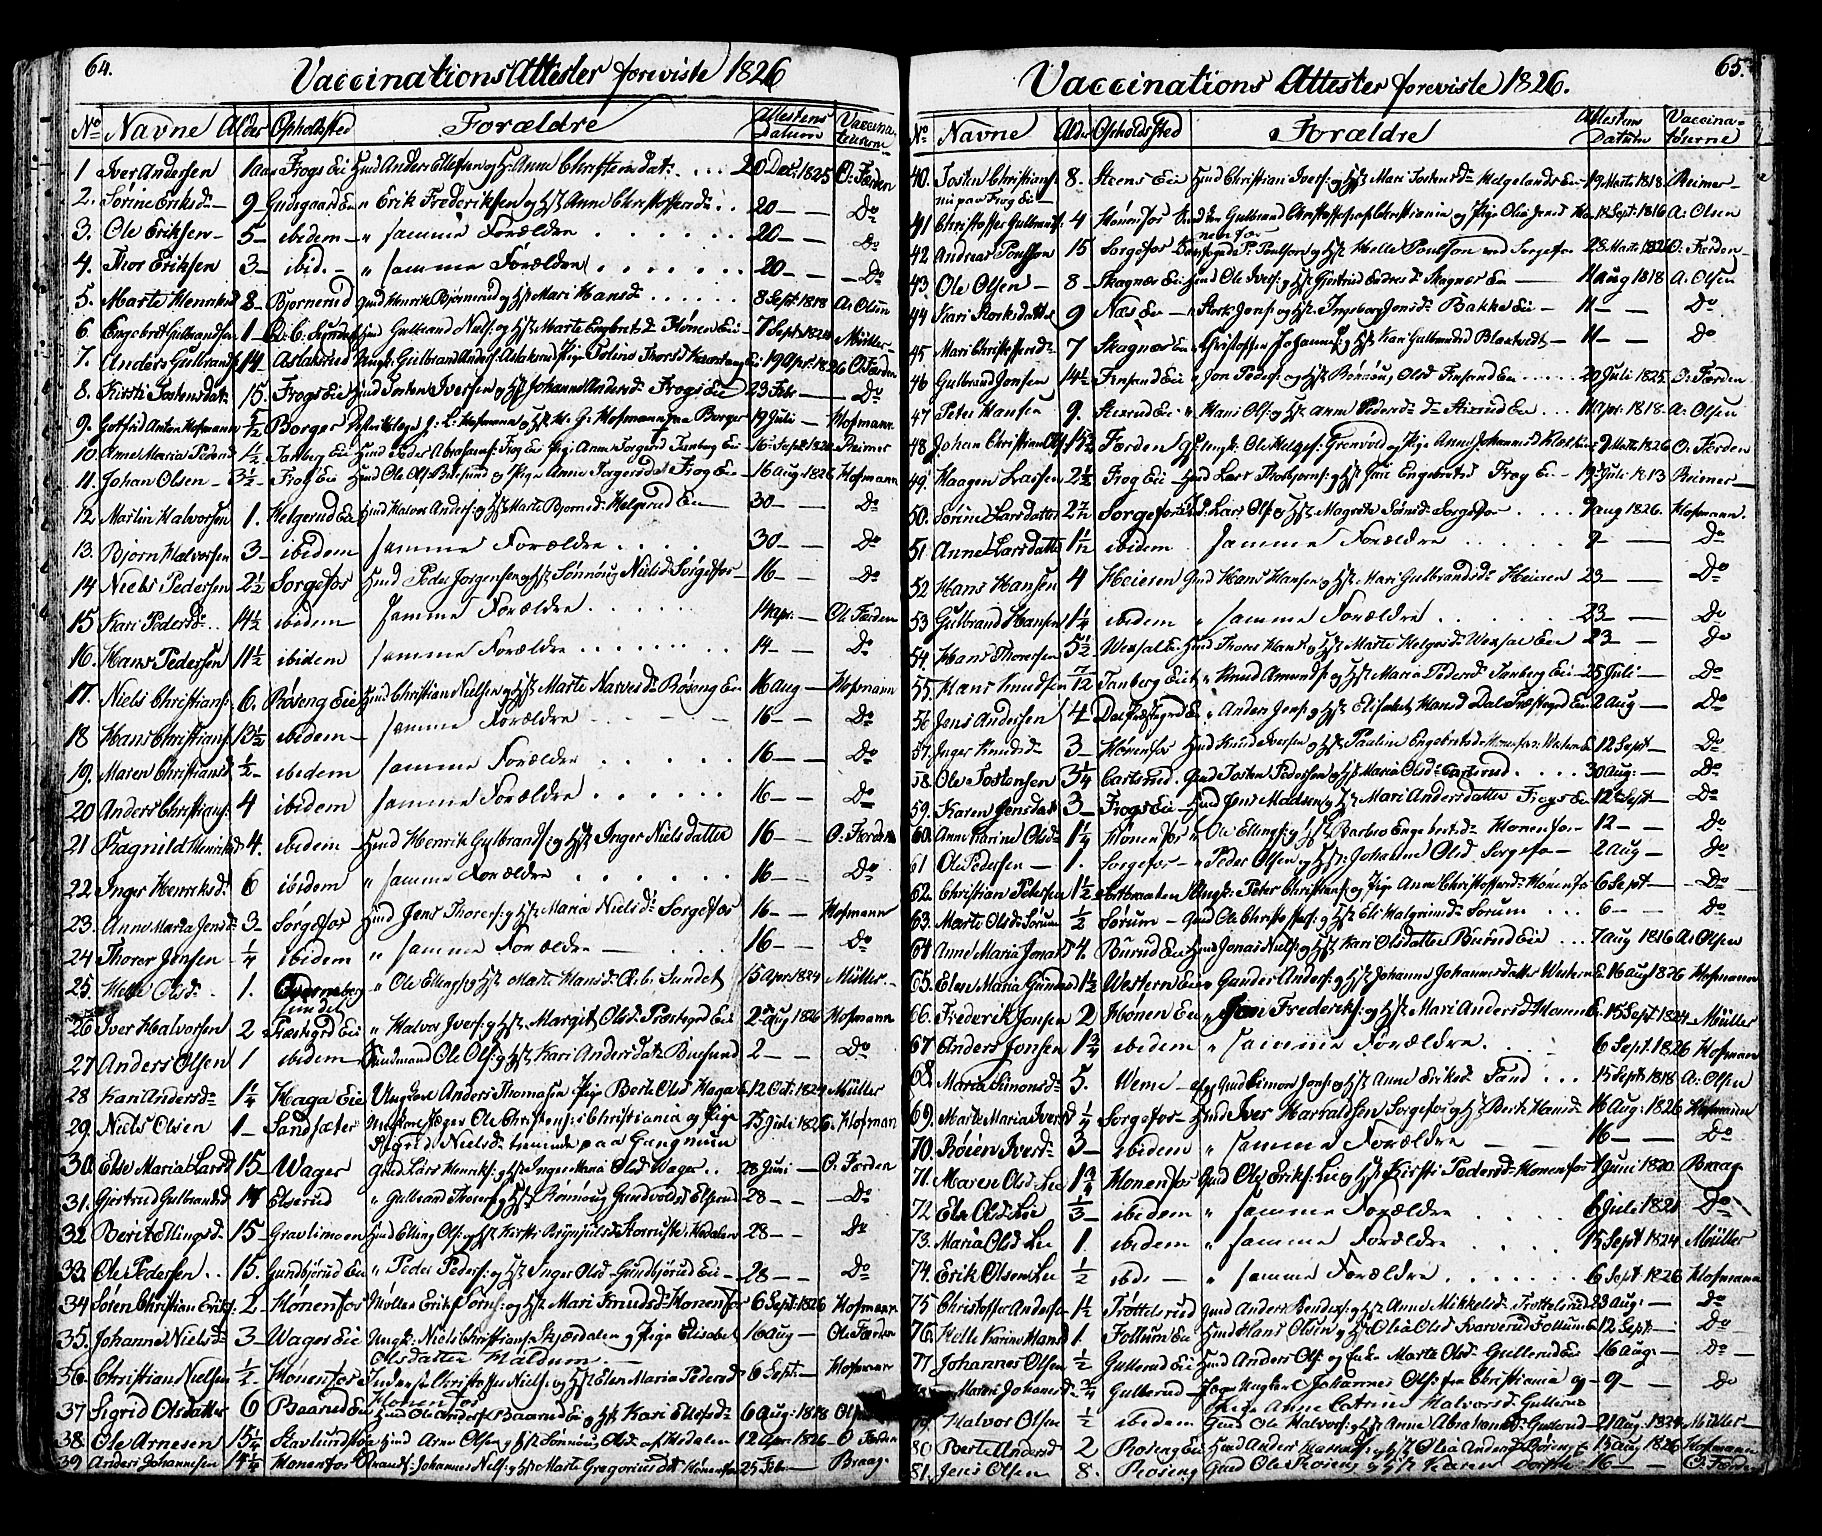 64.
Vaccinations Attester foreviste 1826
No Navne Alder Opholdsted Forældre Attestens Datum Vaccinateurerne
1 Iver Andersen 1 aar Frogs Eie Huusmand Anders Ellefsen og H: Anne 20 Dec: 1825 O: Færden
2. Sørine Eriksd: 9 Gudsgaards Eie " Erik Frederiksen og Hst Anne Christoffersd: 20 — — Do
3. Ole Eriksen 5 ibidem " samme Forældre 20 — — Do
4. Thor Eriksen 3 ibid. " samme Forældre 20 — — Do
5. Marte Henriksd 8 Bjørnerud Gmd Henrik Bjørnerud og Hst Mari Hansd: 8 Sept: 1818 A: Olsen
6 Engebret Gulbrandsen 1 Gulbrand Niels: og Hst Marte Engebretsd: Hønen Eie 7 Sept: 1824 Müller
7. Anders Gulbrands 14 Aslaksrud Gulbrand Anders: Aslaksrud Pige 19 Apr: 1826 O Færden
8. Kirsti Tostensdat: 15 Frogs Eie Huusmd Tosten Iversen og Hst Johanne Andersd: Frogs Eie 23 Febr — Do
9. Gotfrid Anton Hofmann 5/12 Borger Hofmann paa Borger 19 Juli — Hofmann
10. Anne Maria Pedersd 1½ Tanberg Eie Peder Abrahams: Frog Eie Pige Anne Tanberg Eie 16 Sept: 182 Reimer
11. Johan Olsen 3½ Frog Eie Hmd Ole Ols: Busund og Pige Anne Torgersdat: Frog Eie 16 Aug: 1826 Hofmann
12 Martin Halvorsen 1. Helgerud Eie Hmd Halvor Anders: og Hst Marte Bjornsd: Helgerud Eie 30 — Do
13. Bjorn Halvorsen 3 ibidem samme Forældre 30 — Do
14 Niels Pedersen 2½ Sorgefos Hmd Peder Jorgensen og Hst Sønnøug Nielsd: Sørgefos 16 — Do
15 Kari Pedersd: 14½ ibidem samme Forældre 14 Apr: — Ol: Færden
16. Hans Pedersen 11½ ibidem samme Forældre 14 — Do
17. Niels Christians: 6. Røseng Eie Hmd Christian Nielsen og Hst Marte Narvesd: Røseng Eie 16 Aug — Hofmann
18 Hans Christians: 13½ ibidem samme Forældre 16 — Do
19. Maren Christiansd ½ ibidem samme Forældre 16 — Do
20 Anders Christians: 4 ibidem samme Forældre 16 — Do
21 Ragnild Henriksd 4. ibidem Hmd Henrik Gulbrands: og Hst Inger Nielsdatter 16 — O. Færden
22. Inger Henriksd: 6 ibidem " samme Forældre 16 — Do
23. Anne Marta Jensd: 3 Sørgefos Hmd Jens Thorers: og Hst Maria Nielsd: Sorgefos 16 — Hofmann
24 Thorer Jensen ¼ ibidem " samme Forældre 16 — Do
25. Helle Olsd: 1. " Ole Ellings: og Hst Marte Hansd: Sundet 15 Apr: 1824 Müller
26 Iver Halvorsen 2 Præstegrd Eie " Halvor Ivers: og Hst Margit Olsd: Præstegrd Eie 2 Aug 1826 Hofmann
27 Anders Olsen 1 ibidem Huusmand Ole Ols: og Hst Kari Andersdat: Busund 2 — Do
28 Kari Andersd: 1¼ Haga Eie Ungkarl Anders Thomasen Pige Berte Olsd Haga E 12 Oct: 1824 Müller
29. Niels Olsen 1 Sandsæter Ole Christens: i Christiania og Pige 25 Juli 1826 Hofman
Sigrid Nielsd: tienende paa Gangmun
30 Else Maria Larsd 15 Wager Gmd Lars Henriks: og Hst Inger Maria Olsd: Wager 28 Juni — O. Færden
31. Gjertrud Gulbrandsd 14 Elsrud " Gulbrand Thorers: og Hst Rønnoug Gundvoldsd Elsrud 28 — — Do
32 Berit Ellingsd: 15 Gravlimoen Hmd Elling Ols: og Hst Kirsti i Hedalen 28 — — Do
33. Ole Pedersen 15. Gundbjørud Eie " Peder Peders: og Hst Inger Olsd Gundbjørud Eie 28 — Do
34 Søren Christian Eriks: 2 Hønenfos Møller Erik Sørns: og Hst Mari Knudsd: Honenfos 6 Sept: 1826 Hofmann
35. Johanne Nielsd: 3 Wager Eie Ungk: Niels Christians: Skjerdalen og Pige Elisabet 16 Aug — Ole Færden
Olsdatter Haldum
36. Christian Nielsen ½ Hønenfos Christoffer Niels: og Hst Elen Maria Pedersd 6 Sept: — Hofmann
Hønenfos
37 Sigrid Olsdatter 6 Baarud Eie Hmd Ole Anders: Baarud Eie og Hst Kari Ellefsd: 6 Aug: 1818 Olsen
38. Ole Arnesen 15¼ Hmd Arne Olsen og Hst Sønnøug Olsd: af Hedalen 12 Apr: 1826 O Færden
39 Anders Johannesen 14¼ Honenfos Johannes Niels: og Hst Marte Gregoriusd Hønenfos 25 Feb: Braag
65.
Vaccinations Attester foreviste 1826.
No Navne Alder Opholdsted Forældre Attestens Datum Vaccinatørerne
40. Tosten Christians: 8. Steens Eie Hmd Christian Ivers: og Hst Mari Tostensd: Helgelands Eie 19 Marts 1818 Reimer
nu paa Frog Eie
41 Christoffer Gulbrands: 4 Hönenfos Gulbrand Christoffers: af Christiania og Pige Olia Jensd 18 Sept: 1816 A: Olsen
42 Andreas Poulsson 15 Sorgefos P: Poulsson og Hst Helle Poulsson ved Sorgefos 28 Marts 1826 O: Færden
43. Ole Olsen 8 Skagnæs Eie Hmd Ole Ivers: og Hst Gjertrud Endresd: Skagnæs Eie 11 Aug 1818 A: Olsen
44 Kari Storksdatter 9 Næs Eie " Stork Jons: og Hst Ingeborg Jonsd: Bakke Eie 11 — Do
45 Mari Christoffersd: 7 Skagnæs Eie Christoffer Johannes: og Hst Kari Gulbrandsd 11 — Do
46 Gulbrand Jonsen 14½ Finsand Eie " Jon Peders: og Hst Rønnoug Olsd Finsand Eie 20 Juli 1825 O: Færden
47 Peter Hansen 9. Stixrud Eie " Hans Ols: og Hst Anne Pedersd: Stixrud Eie 11 Apr: 1818. A: Olsen
48 Johan Christian Ols 1½ Færden Ungk: Ole Helges: Grønvold og Pige Anne Johannesd 9 Marts 1826 O: Færden
49. Haagen Larsen 2½ Frog Eie Hmd Lars Thorbjørns: og Hst Gure Engebretsd Frog Eie 19 Juli 1813 Reimer
50. Sørine Larsdatter Sorgefos Hmd Lars Ols: og Hst Magrete Sorgefos 9 Aug 1826. Hofmann.
51 Anne Larsdatter ibidem samme Forældre 9 — Do
52 Hans Hansen 4 Heieren Gmd Hans Hansen og Hst Mari Gulbrandsd: Heieren 23 — Do
53 Gulbrand Hansen 1¼ ibidem " samme Forældre 23 — Do
54. Hans Thoresen 5½ Wexal Eie Hmd Thores Hans: og Hst Marte Helgesd: Wexal Eie 23 — Do
55. Hans Knudsen 7/12 Tanberg Eie " Knud Amunds: og Hst Maria Pedersd: Tanberg Eie 25 Juli — Do
56 Jens Andersen 4 Dal Præstegrd Eie " Anders Jens: og Hst Elisabet Hansd Dal Præstegrd Eie 2 Aug — Do
57. Inger Knudsd: 3 Hönenfos Hmd Knud Iversen og Hst Pauline Engebretsd 12 Sept — Do
58. Ole Tostensen 3¼ Carlsrud Gmd Tosten Pedersen og Hst Maria Olsd: Carlsrud 30 Aug: — Do
59. Karen Jensdat: 3 Frogs Eie Hmd Jens Madsen og Hst Mari Andersdatter Frogs Eie 12 Sept — Do
60. Anne Karine Olsd: 1¼ Honenfos " Ole Ellings: og Hst Barbro Engebretsd: Honenfos 12 — Do
61 Ole Pedersen 1. Sorgefos " Peder Olsen og Hst: Johanne Olsd Sorgefos 2 Aug — Do
62. Christian Petersen 1½ Ungk: Peter Christians: og Pige Anne Christoffersd: Hönenfos 6 Sept — Do
63. Marte Olsd: Sörum ½ Sörum Gmd Ole Christoffers: og Hst Eli Halgrimsd: Sorum 6 — Do
64 Anne Maria Jonasd 4. Busund Eie Hmd Jonas Niels: og Hst Kari Olsdatter Busund Eie 7 Aug 1816 A: Olsen
65. Elen Maria Gundersd 1½ Western Eie " Gunder Anders: og Hst Johanne Johannesdatter Western E. 16 Aug 1826 Hofmann
66. Frederik Jonsen 2 Hønen Eie " Jon Frederiks: og Hst Mari Andersd: Hønen E. 15 Sept: 1824 Müller
67 Anders Jonsen 1¾ ibidem " samme Forældre 6 Sept. 1826 Hofman
68. Maria Simonsd: 5. Weme Gmd Simon Jons: og Hst Anne Eriksd: Sand 15 Sept: 1818 A: Olsen
69. Marte Maria Iversd ¼ Sorgefos Hmd Iver Harraldsen Sorgefos og Hst Berte Hansd: 16 Aug: 1826 Hofmann
70. Røien Iversd: 3 ibidem " samme Forældre 16 — Do
71. Maren Olsd Lie 1¾ Hønenfos Gmd Ole Eriks: Lie og Hst Kirsti Pedersd: Honenfos 1 Juni 1820 Braag
72. Else Olsd Lie ⅓ ibidem " samme Forældre 6 Juli 1821 Do
73. Maria Olsd Lie 1. ibidem " samme Forældre 15 Sept 1824 Müller
74. Erik Olsen Lie ½ ibid: " samme Forældre 6 Sept 1826 Hofmann
75 Christoffer Andersen 1½ Trøttelsrud Gmd Anders Enders: og Hst Anne Mikkelsd: Trøttelsrud 23 Aug: — Do
76. Helle Karine Hansd 1. Follum Eie Hmd Hans Olsen og Hst Olia Olsd Svarverud Follum E 12 Sept: — Do
77. Johannes Olsen ½ Gullerud Eie Hmd Anders Ols: og Enke Marte Olsd: Gullerud Eie 16 Aug: — Do
Maren Johannesd ¾ Gullerud Ungkarl Johannes Ols: fra Christiania og 9 — Do
Pige Anne Catrine Halvorsd: Gullerud
79 Halvor Olsen ½ ibidem Gmd Ole Halvors: og Hst Anne Abrahamsd: Gullerud 21 Aug: 1824 Müller
80 Berte Andersd 2 Roseng Eie Hmd Anders og Hst Olia Andersd: Røseng E 15 Aug 1826 Hofmann
81. Jens Olsen 8. Roseng Gmd Ole Roseng og Hst Karen 16 — O: Færden